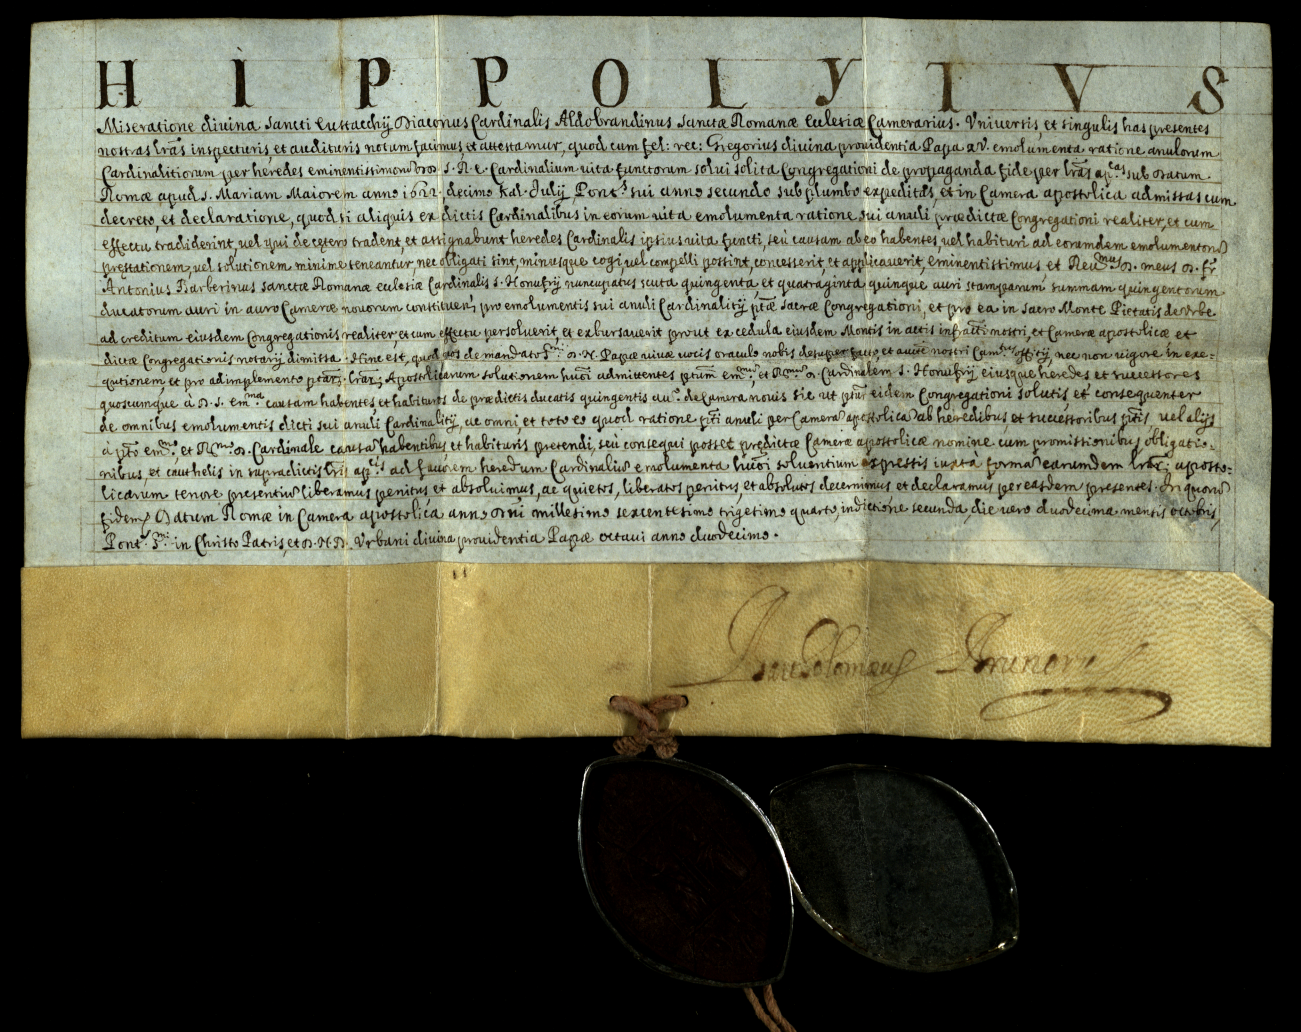 HIPPOLYTVS
Miseratione divina Sancti Eustacchij Diaconus Cardinalis Aldobrandinus Sanctæ Romanæ Ecclesiæ Camerarius. Vniversis et singulis has presentes
nostras lrãs inspecturis, et audituris notum facimus et attestamur, quod cum fel: rec: Gregorius divina providentia Papa XV. emolumenta ratione anulorum
Cardinalitiorum per heredes eminentissimorum S. R. E. Cardinalium vita functorum solui solita Congregationi de propaganda fide per lrãs ap.cas sub Datum
Romæ apud S. Mariam Maiorem anno 1622. decimo Kal. Julij, Pont.s sui anno secundo sub plumbo expeditas, et in Camera apostolica admissas cum
decreto, et declaratione, quod si aliquis ex dictis Cardinalibus in eorum vita emolumenta ratione sui anuli prædictæ Congregationi realiter, et cum
effectu tradiderint, vel qui de cetero tradent, et assignabunt heredes Cardinalis ipsius vita functi, seù causam ab eo habentes vel habituri ad eorumdem emolumentorũ
prestationem, vel solutionem minime teneantur, nec obligati sint, minusque cogi, vel compelli possint, concesserit, et applicaverit, eminentissimus et Reu.mus D. meus D. fr.
Antonius Barberinus Sanctæ Romanæ ecclesiæ Cardinalis S. Honufrij nuncupatus scuta quingenta, et quatraginta quinque auri stamparum summam quingentorum
ducatorum auri in auro Cameræ novorum constituen, pro emolumentis sui anuli Cardinalitij ptæ Sacræ Congregationi, et pro ea in Sacro Monte Pietatis de Vrbe
ad creditum eiusdem Congregationis realiter, et cum effectu persoluerit, et exbursaverit prout ex cedula eiusdem Montis in actis infracti nostri, et Cameræ apostolicæ et
dictæ Congregationis notarij dimissa. Hinc est, quod nos de mandato S.mi D. N. Papæ vivæ vocis oraculo nobis desuper facto, et aucte nostri Cam.tus officij, nec non vigore in exe=
qutionem et pro adimplemento ptarũ lrarũ Apostolicarum solutionem huiõi admittentes ptum em.mum, et R.mum D. Cardinalem S. Honufrij eiusque heredes et successores
quoscumque à D. S. em.ma causam habentes, et habituros de prædictis ducatis quingentis au.º de Camera novis sic ut ptur eidem Congregationi solutis et consequenter
de omnibus emolumentis dicti sui anuli Cardinalitij, ac omni et toto eo quod ratione pti anuli per Camerã apostolicã ab heredibus, et successoribus ptis, vel alijs
à pto em.mo, et R.mo D. Cardinale causã habentibus et habituris pretendi, seù consequi posset predictæ Cameræ apostolicæ nomine cum promissionibus, obligatio=
nibus, et cauthelis in supradictis lris ap.cis ad favorem heredum Cardinaliũ emolumenta huiõi solventium expressis iuxtà formã earundem lrarũ: aposto=
licarum tenore presentiũ liberamus penitus, et absoluimus, ac quietos, liberatos penitus, et absolutos decernimus et declaramus per easdem presentes. In quorũ
fidem Datum Romæ in Camera apostolica anno Dñi millesimo sexcentesimo trigesimo quarto, indictione secunda, die vero duodecima mensis octobris,
Pont.s S.mi in Christo Patris, et D. N. D. Vrbani divina providentia Papæ octavi anno duodecimo.